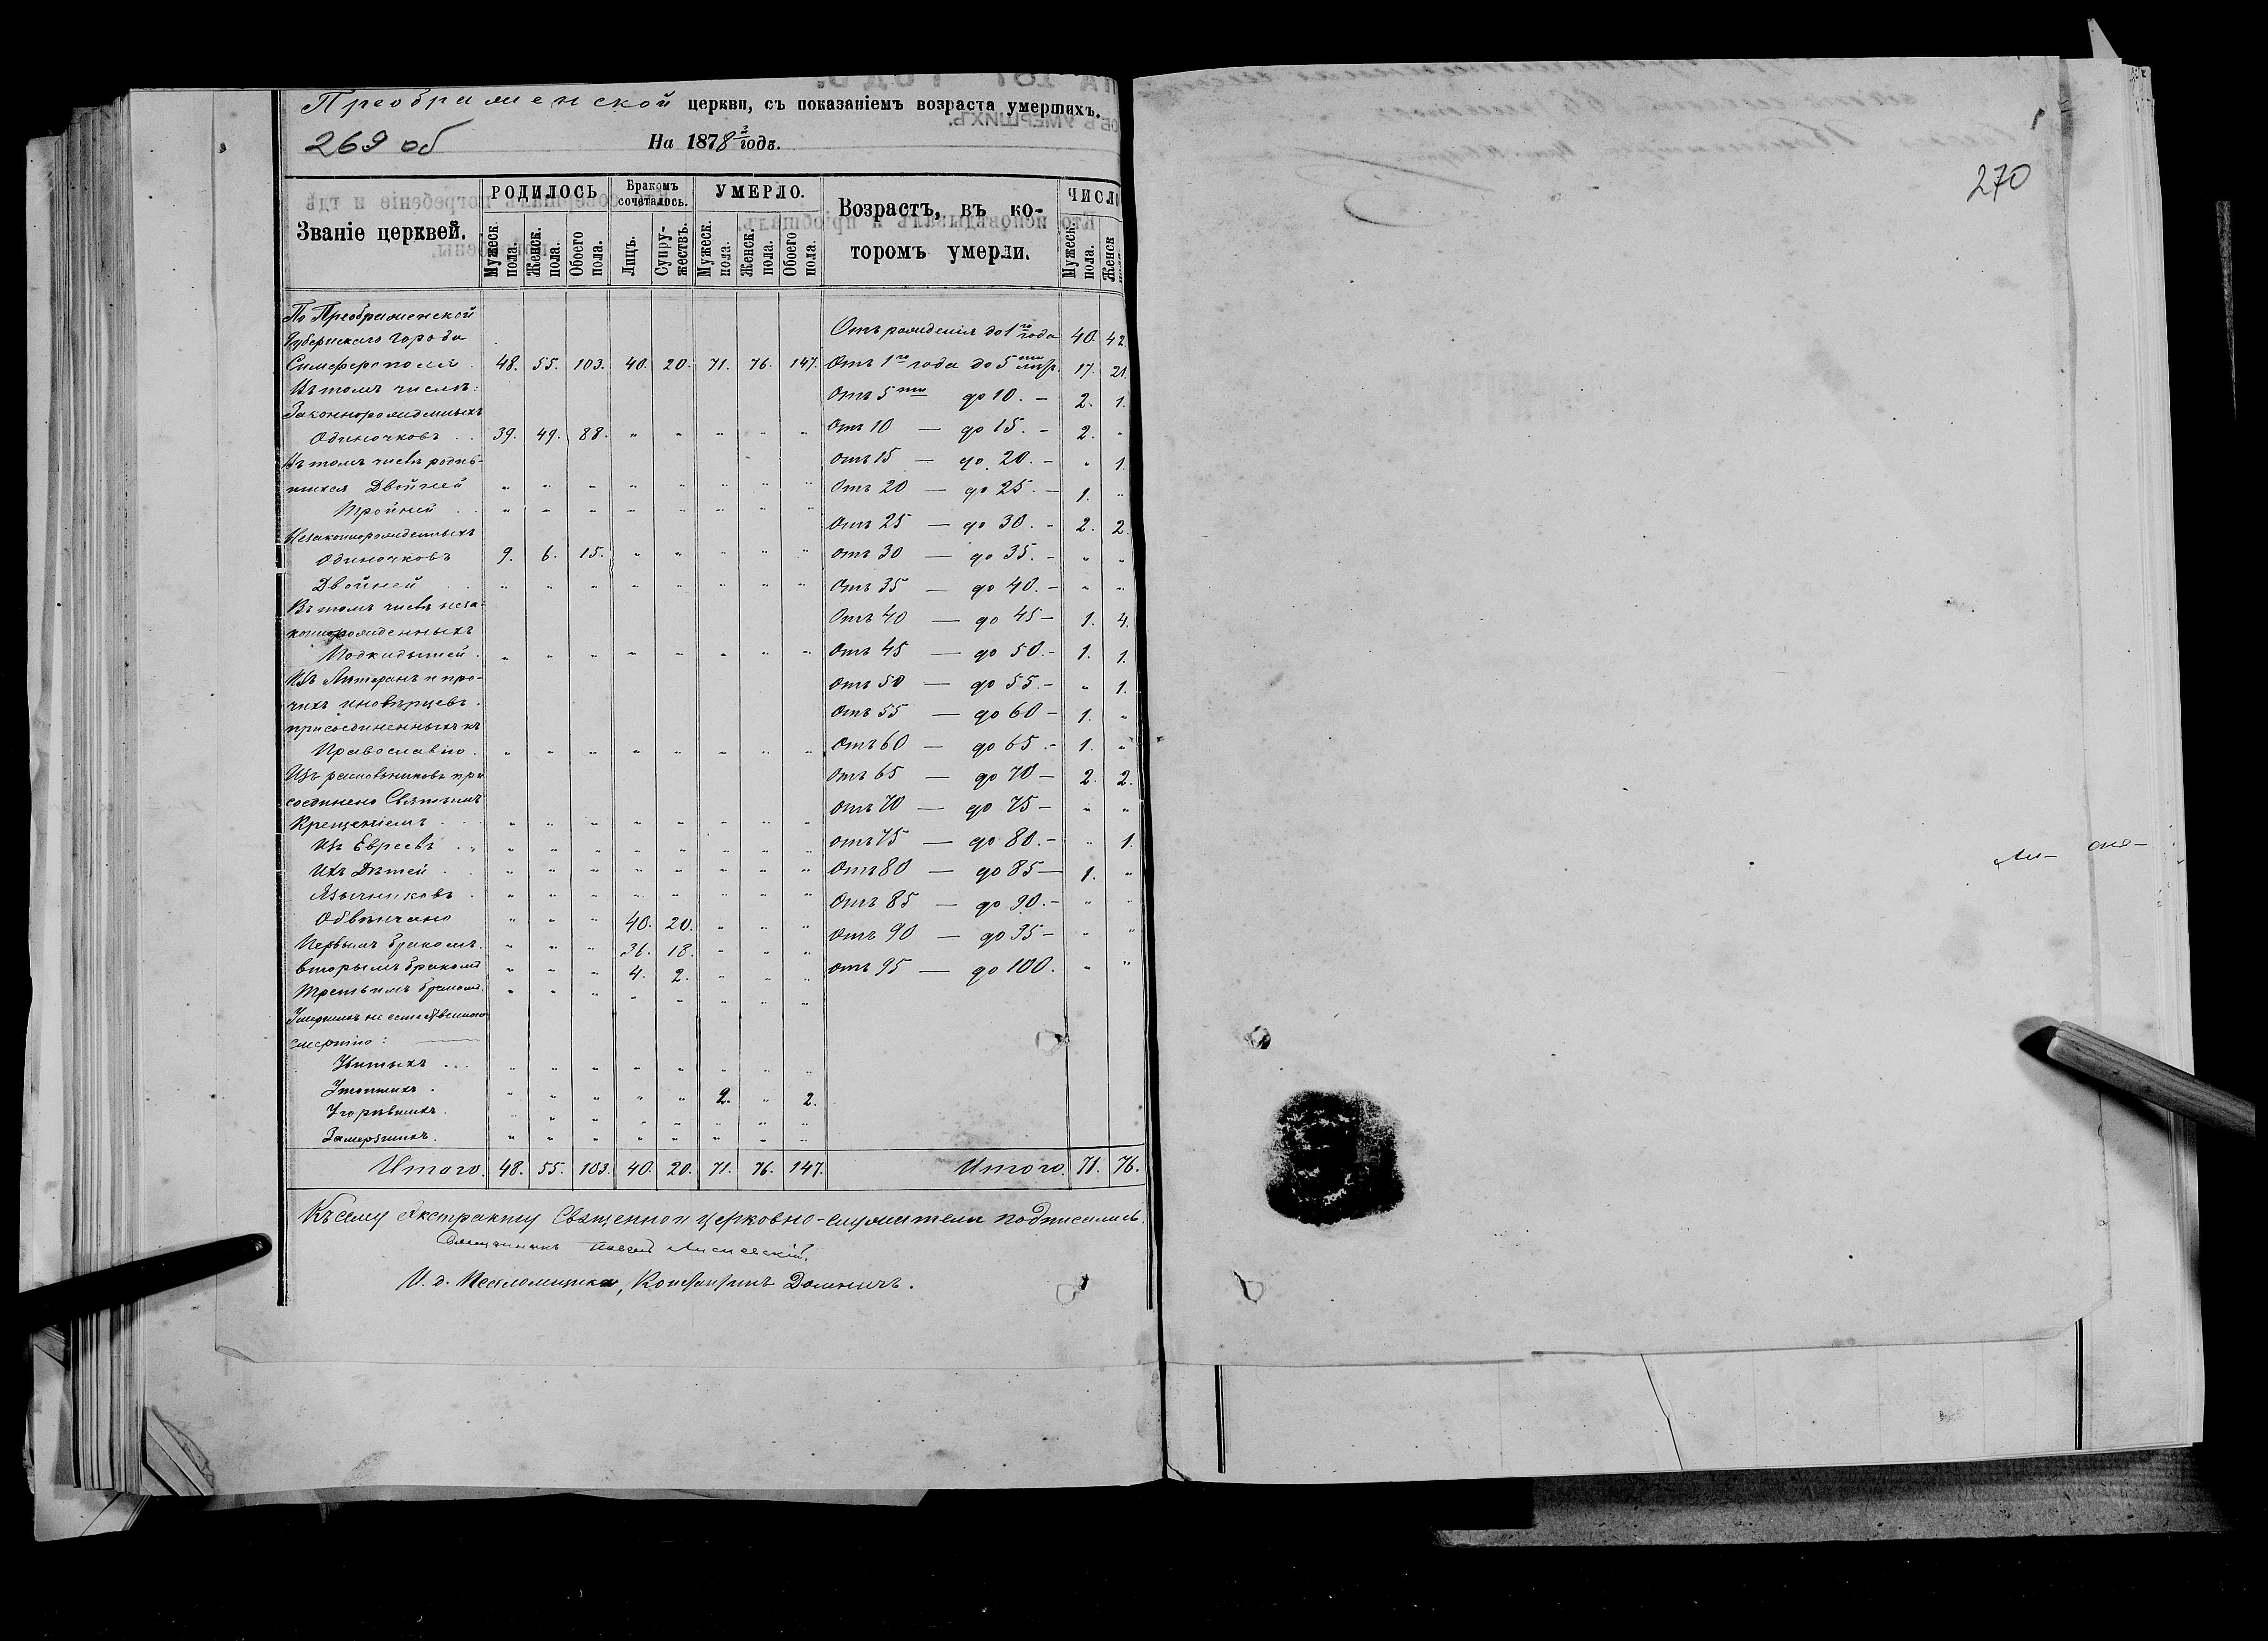 Преображенской церкви, съ показаніемъ возраста умершихъ.
269 об
На 1878 годъ.
270
Званіе церквей.
РОДИЛОСЬ
Бракомъ сочеталось.
УМЕРЛО.
Возрастъ, въ ко-
торомъ умерли.
ЧИСЛО
Мужеск. пола. Женск. пола. Обоего пола. Лицъ. Супру-жествъ. Мужеск. пола. Женск. пола. Обоего пола. Мужеск. пола. Женск
По Преображенской
Губернскаго города
Симферополя . 48. 55. 103. 40. 20. 71. 76. 147.
Въ томъ числѣ:
Законнорожденныхъ
Одиночковъ . . 39. 49. 88. " " " " "
Въ томъ числѣ родив-
шихся Двойней " " " " " " " "
Тройней . . " " " " " " " "
Незаконнорожденныхъ
Одиночковъ 9. 6. 15. " " " " "
Двойней . . " " " " " " " "
Въ томъ числѣ неза-
коннорожденныхъ
Подкидышей . " " " " " " " "
Изъ Лютеранъ и про-
чихъ иновѣрцевъ .
присоединенныхъ къ
Православію . " " " " " " " "
Изъ раскольниковъ при
соединено Святымъ
Крещеніемъ . . . " " " " " " " "
Изъ Евреевъ . . " " " " " " " "
Ихъ Дѣтей . . " " " " " " " "
Язычниковъ . " " " " " " " "
Обвѣнчано " " " 40. 20. " " "
Первымъ бракомъ. " " " 36. 18. " " "
вторымъ бракомъ " " " 4. 2. " " "
Третьимъ бракомъ. " " " " " " " "
Умершихъ не естественною
смертію :
Убитыхъ . . . " " " " " " " "
Утопшихъ . " " " " " 2. " 2.
Угорѣвшихъ . " " " " " " "
Замерзшихъ . " " " " " " " "
Итого. 48. 55. 103. 40. 20. 71. 76. 147.
Отъ рожденія до 1го года 40. 42.
Отъ 1го года до 5ти лѣтъ. 17. 21.
Отъ 5ти до 10. – 2. 1.
Отъ 10 — до 15. – 2. "
Отъ 15 — до 20. – " 1.
Отъ 20 — до 25. — 1. "
Отъ 25 — до 30. – 2. 2.
отъ 30 — до 35. – " "
Отъ 35 — до 40. – " "
Отъ 40 — до 45 – 1. 4.
Отъ 45 — до 50. – 1. 1.
Отъ 50 — до 55. – " 1.
Отъ 55 — до 60 – 1. "
Отъ 60 — до 65 . – 1. "
Отъ 65 — до 70 – 2. 2.
отъ 70 — до 75 – " "
отъ 75 — до 80. – " 1.
Отъ 80 — до 85 — 1. "
Отъ 85 — до 90. – " "
Отъ 90 — до 95 – " "
отъ 95 — до 100. " "
Итого. 71. 76.
Къ сему Экстракту Священно и церковно-служители подписались.
Священникъ
И. д. Псаломщика, Константинъ